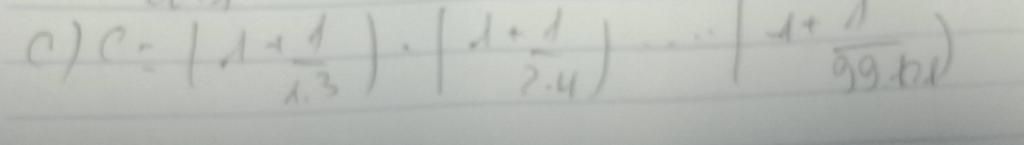 c) C = (1 + 1/1.3) . (1 + 1/2.4) ..... (1 + 1/99.101)